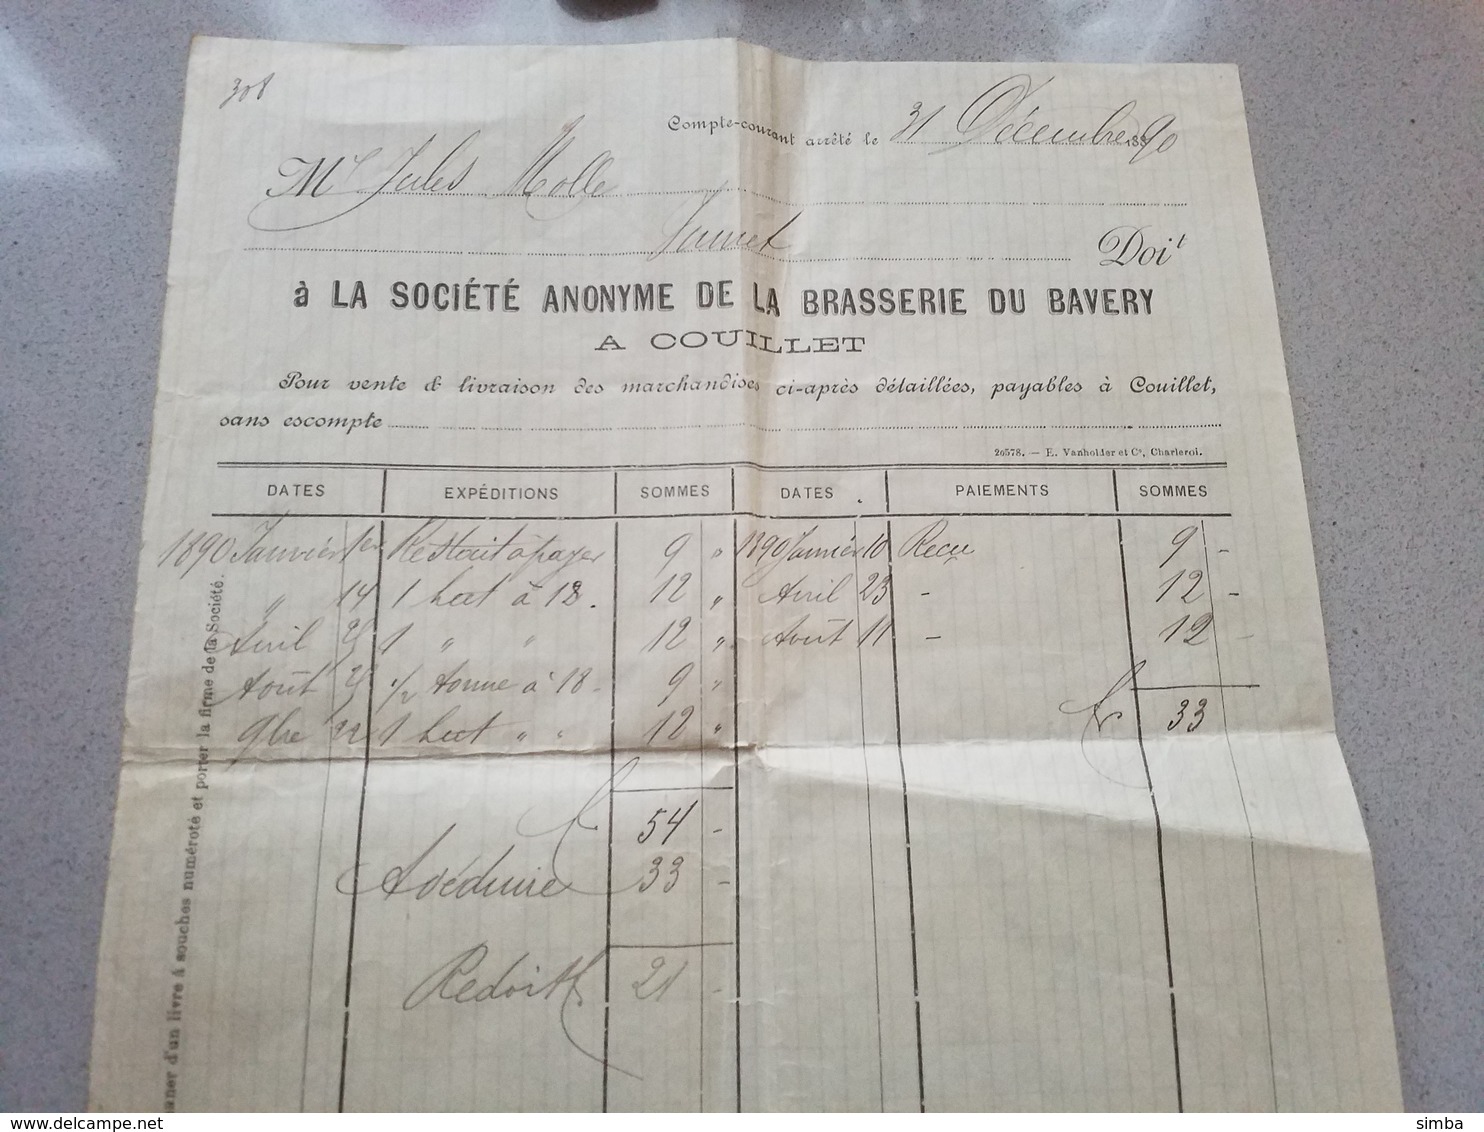 308
Compte-courant arrêté le 31 Décembre 1890
Mr Jules Molle
Jumet Doit
à LA SOCIÉTÉ ANONYME DE LA BRASSERIE DU BAVERY
A COUILLET
Pour vente & livraison des marchandises ci-après détaillées, payables à Couillet,
sans escompte
20578. — E. Vanholder et Cie, Charleroi.
DATES EXPÉDITIONS SOMMES DATES PAIEMENTS SOMMES
1890 Janvier 1er Restait à payer 9 " 1890 Janvier 10 Reçu 9 -
" 14 1 hect à 18. 12 " Avril 23 - 12 -
Avril 25 1 " " 12 " Août 11 - 12 -
Août 25 1/2 tonne à 18 - 9 "
fr 33
9bre 22 1 hect " " 12 "
fr 54 -
A déduire 33 -
Redoit fr 21 -
aner d'un livre à souches numéroté et porter la firme de la Société.
www.delcampe.net
simba